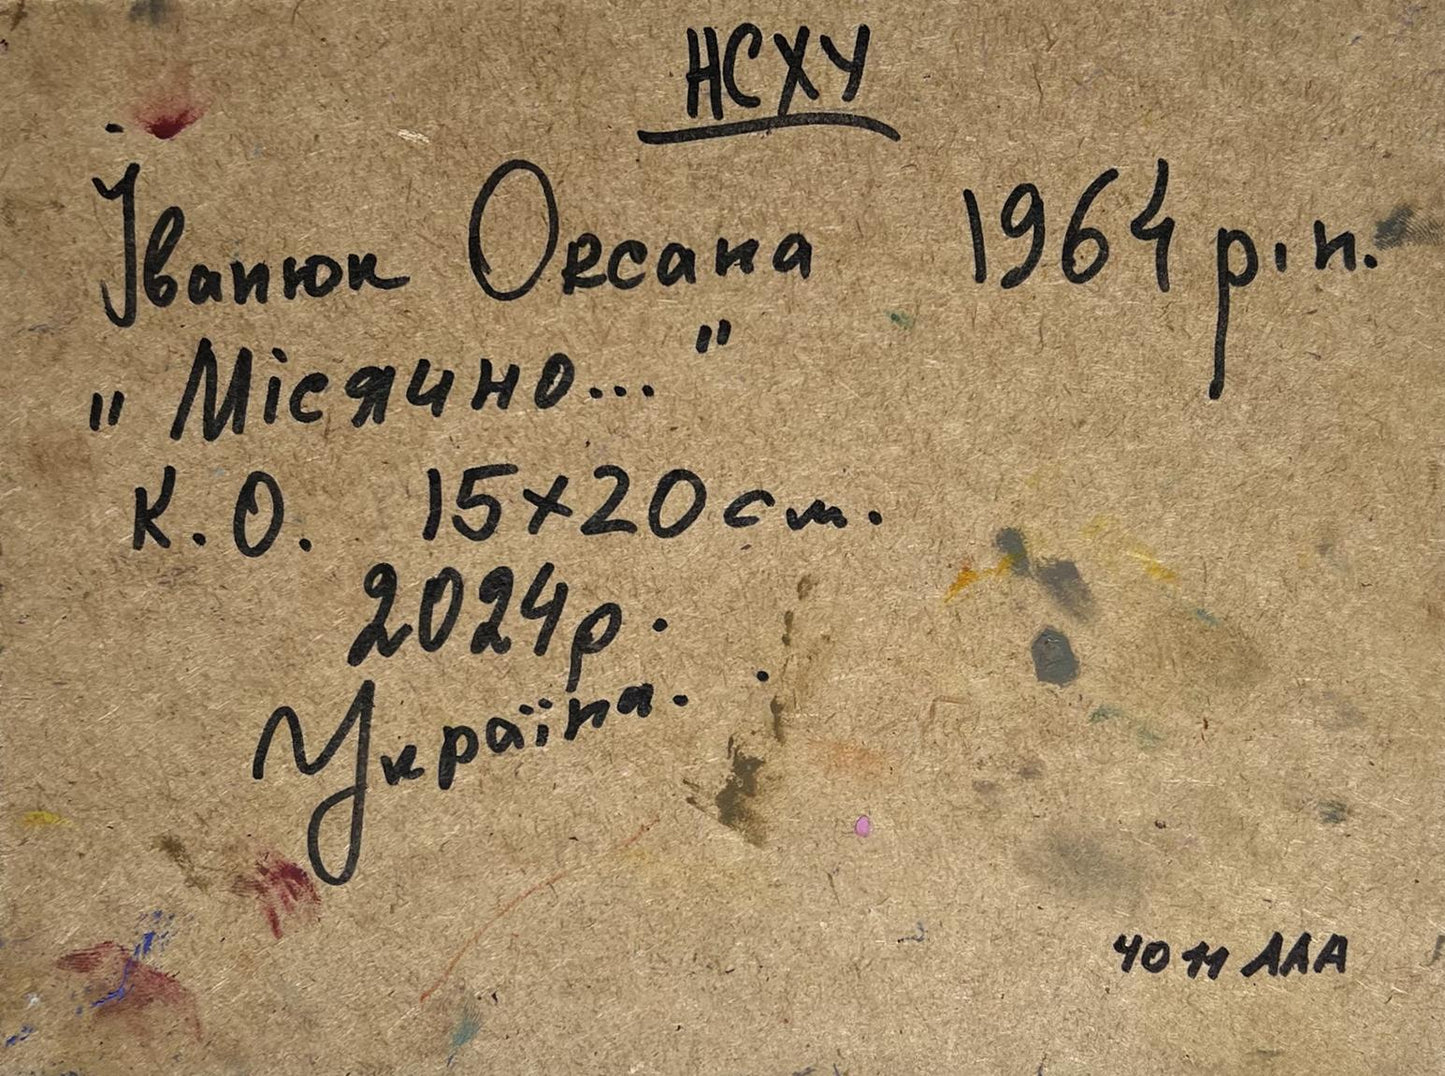 НСХУ
Іванюк Оксана 1964 р.н.
"Місячно..."
К.О. 15х20 см.
2024р.
Україна.
4011 ААА